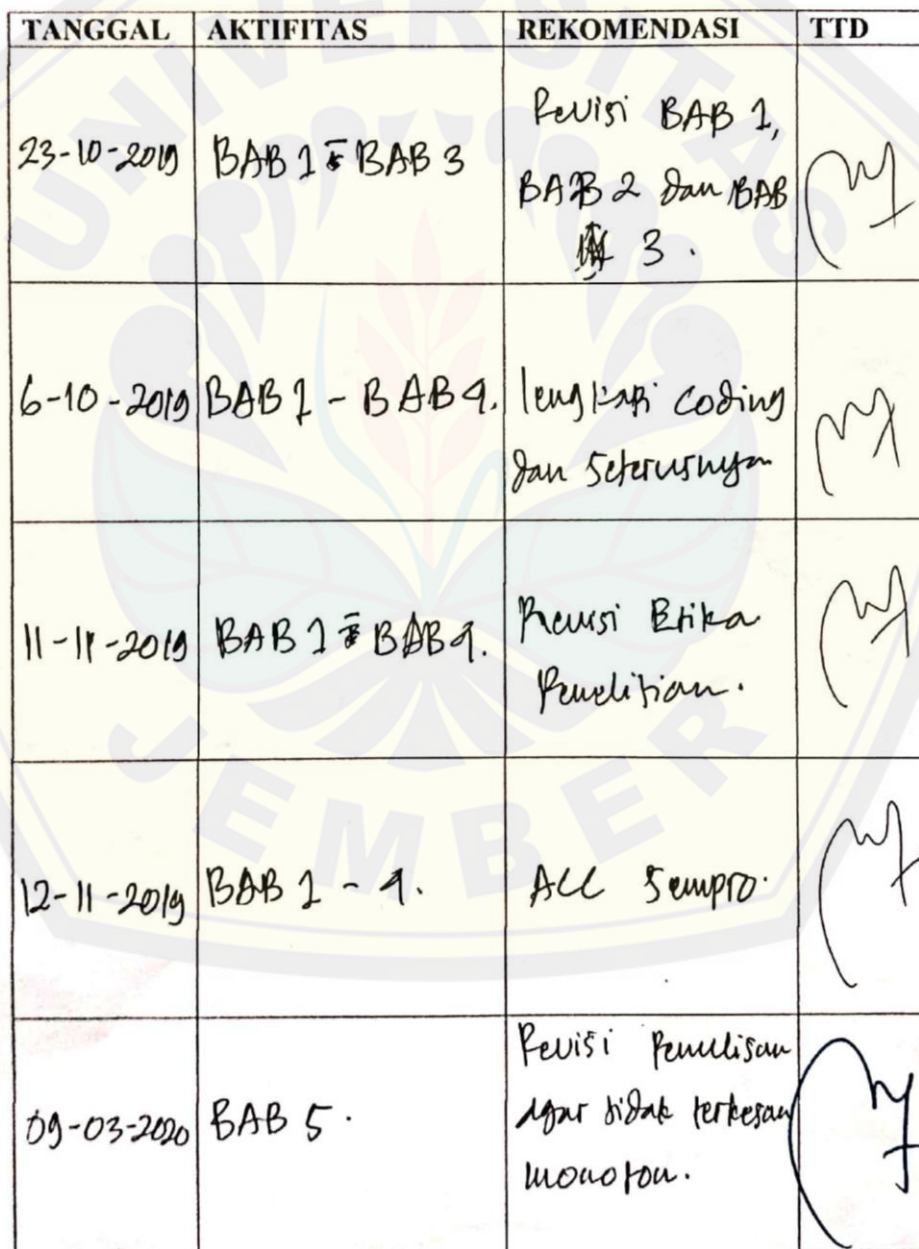 UNIVERSITAS
JEMBER
TANGGAL AKTIFITAS REKOMENDASI TTD
23-10-2019 BAB 1 - BAB 3 Revisi BAB 1,
BAB 2 dan BAB
3.
6-10-2019 BAB 1 - BAB 4. lengkapi coding
dan seterusnya
11-11-2019 BAB 1 - BAB 4. Revisi Etika
Penelitian.
12-11-2019 BAB 1 - 4. ACC Sempro.
09-03-2020 BAB 5. Revisi Penulisan
agar tidak terkesan
monoton.